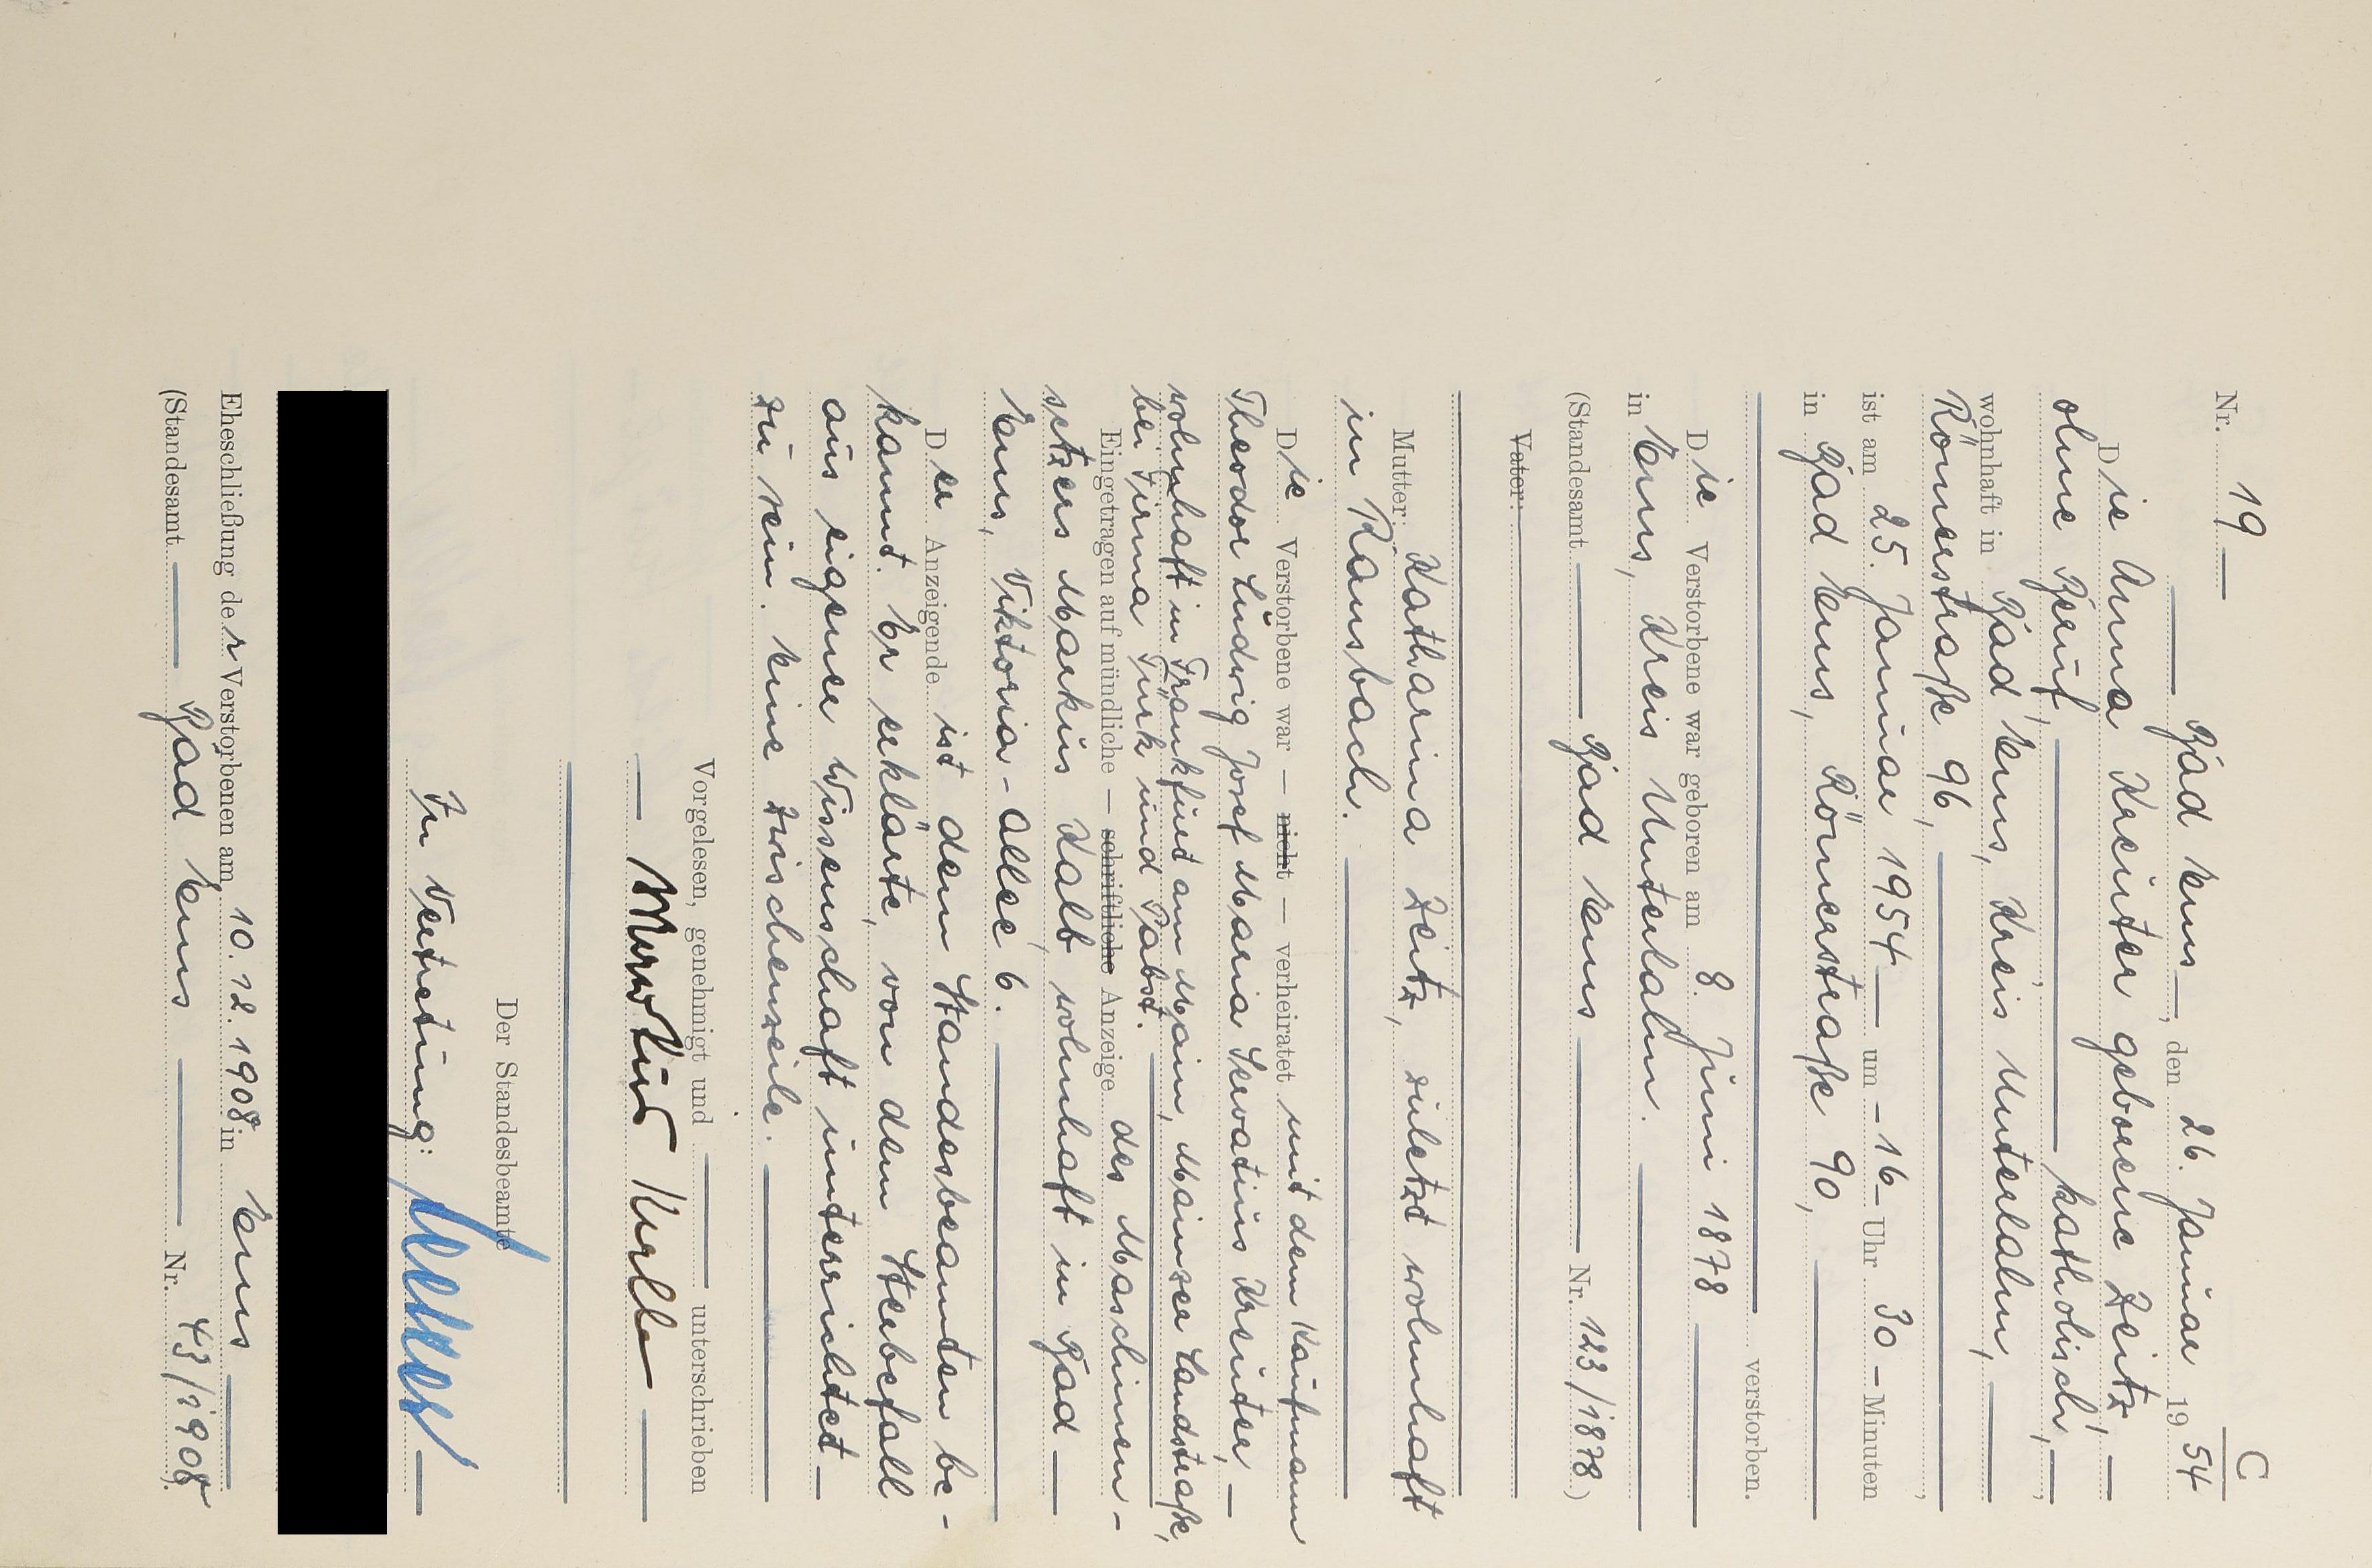 C
Nr. 19
Bad Ems, den 26. Januar 1954
Die Anna Kreuter geborene Zeitz,
ohne Beruf, katholisch,
wohnhaft in Bad Ems, Kreis Unterlahn,
Römerstraße 96,
ist am 25. Januar 1954 um 16 Uhr 30 Minuten
in Bad Ems, Römerstraße 90,
verstorben.
Die Verstorbene war geboren am 8. Juni 1878
in Ems, Kreis Unterlahn.
(Standesamt Bad Ems Nr. 123/1878.)
Vater:
Mutter: Katharina Zeitz, zuletzt wohnhaft
in Ransbach.
Die Verstorbene war — nicht — verheiratet mit dem Kaufmann
Theodor Ludwig Josef Maria Servatius Kreuter,
wohnhaft in Frankfurt am Main, Mainzer Landstraße,
bei Firma Türk und Pabst.
Eingetragen auf mündliche — schriftliche Anzeige des Maschinen-
setzers Markus Kalb wohnhaft in Bad
Ems, Viktoria-Allee 6.
Der Anzeigende ist dem Standesbeamten be-
kannt. Er erklärte, von dem Sterbefall
aus eigener Wissenschaft unterrichtet
zu sein. Eine Zwischenzeile.
Vorgelesen, genehmigt und unterschrieben
Der Standesbeamte
In Vertretung:
Eheschließung der Verstorbenen am 10.12.1908 in Ems
(Standesamt Bad Ems Nr. 43/1908)